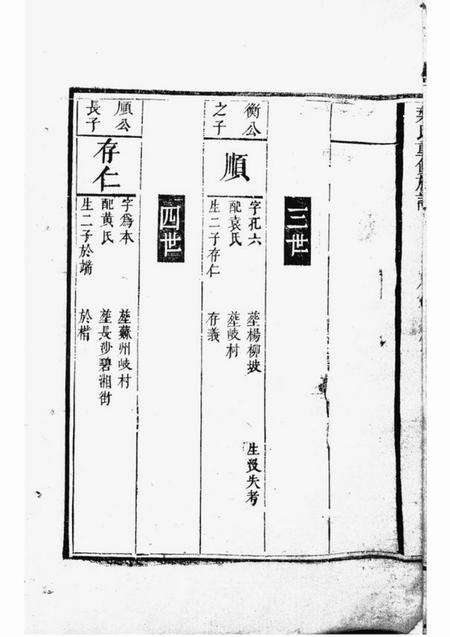 三世
衡公之子
順
字孔六 塟楊柳坡 生歿失考
配袁氏 塟岐村
生二子存仁 存義
四世
順公長子
存仁
字爲本 塟蘇州岐村
配黄氏 塟長沙碧湘街
生二子於端 於楷